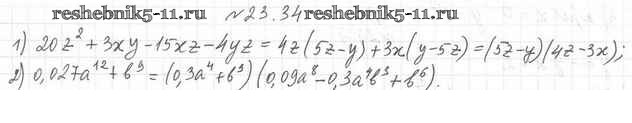 reshebnik5-11.ru №23.34 reshebnik5-11.ru
1) 20z² + 3xy - 15xz - 4yz = 4z(5z-y) + 3x(y-5z) = (5z-y)(4z-3x);
2) 0,027a¹² + b⁹ = (0,3a⁴ + b³)(0,09a⁸ - 0,3a⁴b³ + b⁶).